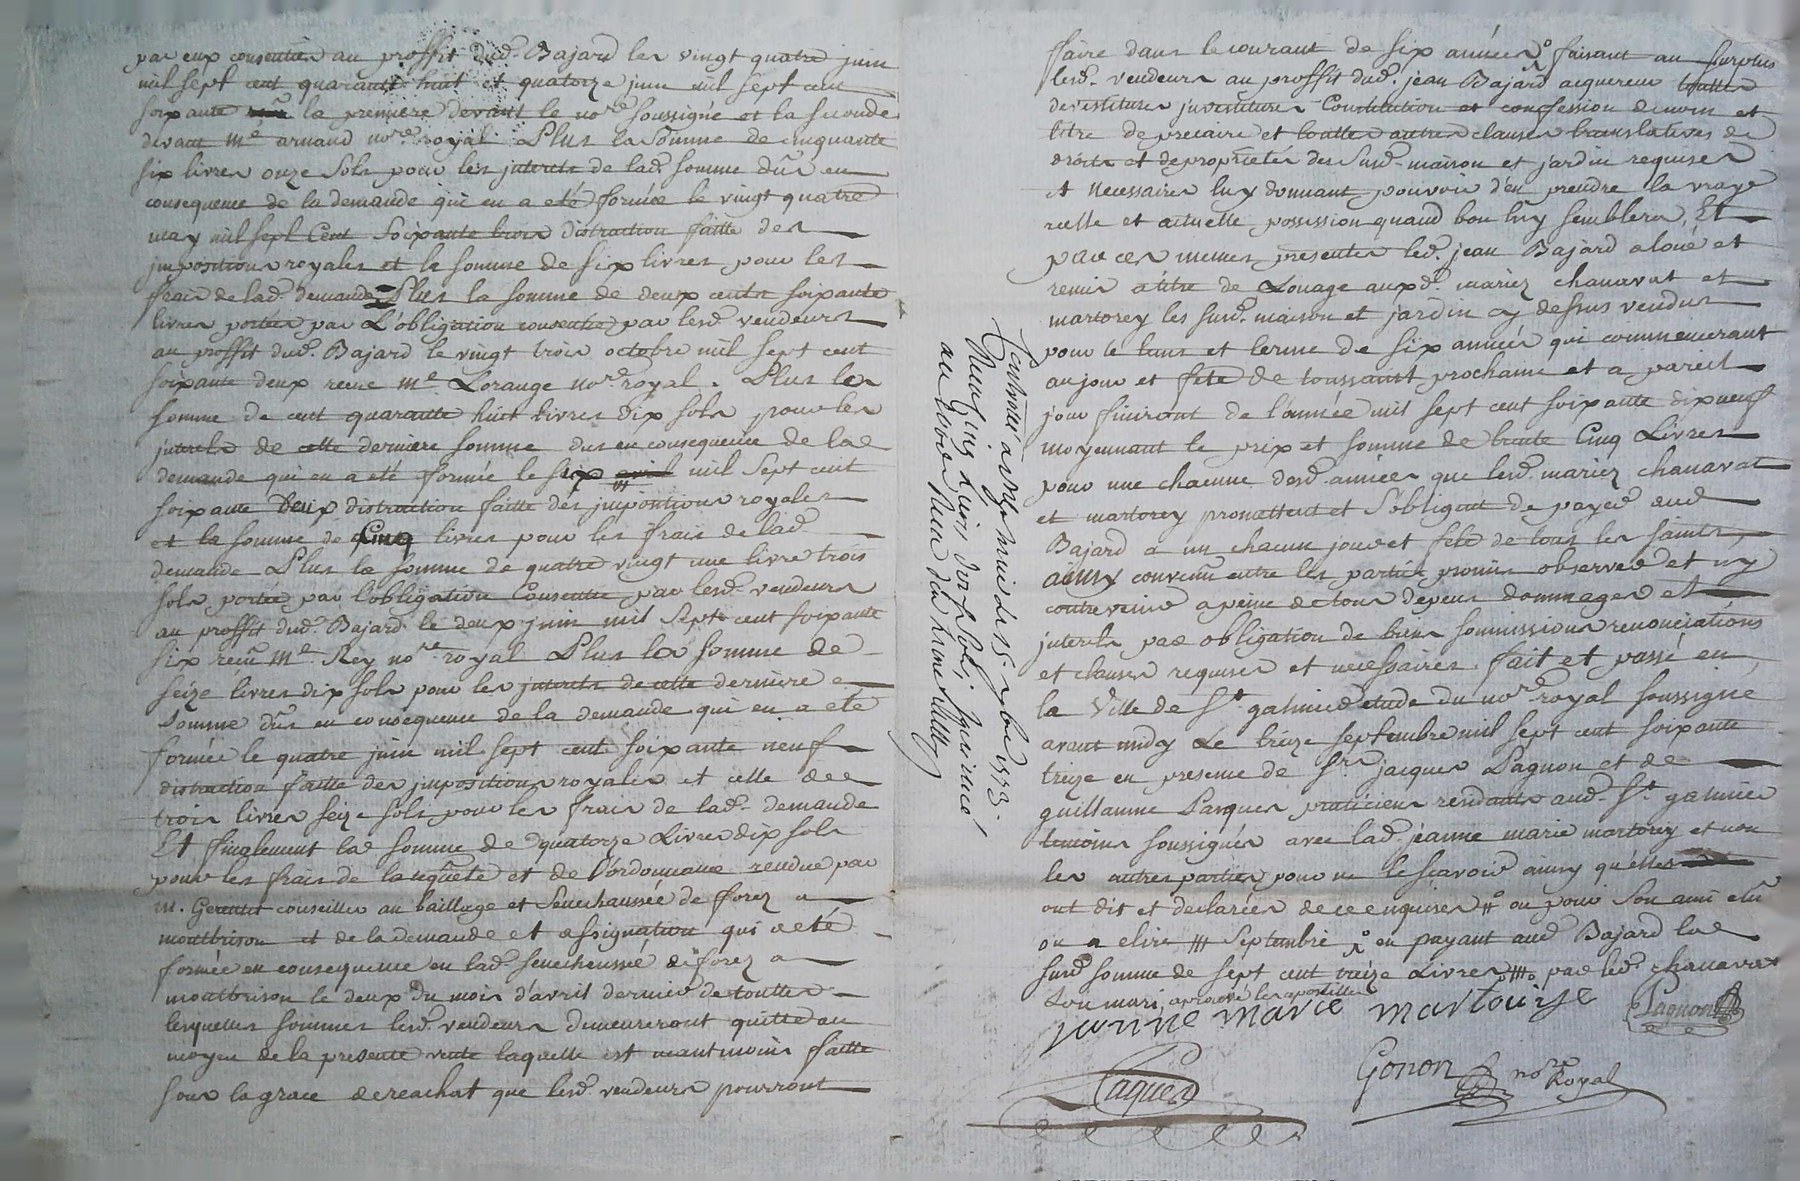 par eux consenties au proffit dud. Bajard les vingt quatre juin
mil sept cent quarante huit et quatorze juin mil sept cent
soixante la premiere devant le no.re soussigné et la seconde
devant m.e arnaud no.re royal Plus la somme de cinquante
six livres onze sols pour les interets de lad. somme dus en
consequence de la demande qui en a eté formée le vingt quatre
may mil sept Cent soixante trois distraction faitte des
impositions royales et la somme de six livres pour les
frais de lad. demande Plus la somme de deux cents soixante
livres portées par L'obligation consentie par lesd. vendeurs
au proffit dud. Bajard le vingt trois octobre mil sept cent
soixante deux receue m.e Lorange no.re royal . Plus la
somme de cent quarante huit livres dix sols pour les
interets de cette derniere somme dus en consequence de la
demande qui en a eté formée le six mil sept cent
soixante deux distraction faitte des impositions royales
et la somme de cinq livres pour les frais de lad.
demande Plus la somme de quatre vingt une livre trois
sols portée par l'obligation Consentie par lesd. vendeurs
au proffit dud. Bajard le deux juin mil sept cent soixante
six receu M.e Rey no.re royal Plus la somme de
seize livres dix sols pour les interets de cette derniere
somme dus en consequence de la demande qui en a eté
formée le quatre juin mil sept cent soixante neuf
distraction faitte des impositions royales et celle de
trois livres seize sols pour les frais de lad. demande
Et finalement la somme de quatorze Livres dix sols
pour les frais de la requête et de l'ordonnance rendue par
m. conseiller au bailliage et Senechaussée de forez a
montbrison et de la demande et assignation qui a eté
formée en consequence en lad. senechaussée de forez a
montbrison le deux du mois d'avril dernier de touttes
lesquelles sommes lesd. vendeurs demeureront quitte au
moyen de la presente vente laquelle est neantmoins faitte
sous la grace de reachat que lesd. vendeurs pourront
Controllé a st galmier le 15. 7bre 1773.
Receu Cinq Livres dont sols
faire dans le courant de six années faisant au surplus
lesd. vendeurs au proffit dud. jean Bajard acquereur touttes
devestitures investitures Constitution et confession de nom et
titre de precaire et touttes autres clauses translatives de
droits et de proprietés des susd. maison et jardin requises
et necessaires luy donnant pouvoir d'en prendre la vraye
reelle et actuelle possession quand bon luy semblera, Et
par ces memes presentes led. jean Bajard a loué et
remis a titre de Louage auxd. mariez chanavat et
martorey les susd. maison et jardin cy dessus vendus
pour le tems et terme de six années qui commenceront
au jour et fete de toussaint prochaine et a pareil
jour finiront de l'année mil sept cent soixante dix neuf
moyennant le prix et somme de trente Cinq Livres
pour une chacune desd. années que lesd. mariez chanavat
et martorey promettent et s'obligent de payer aud.
Bajard a un chacun jour et fete de tous les saints,
ainsy convenu entre les parties promis observer et n'y
contrevenir a peine de tous depens dommages et
interets par obligation de biens soumissions renonciations
et clauses requises et necessaires. fait et passé en
la Ville de S.t galmier etude du no.re royal soussigné
avant midy Le treize septembre mil sept cent soixante
treize en presence de S.rs jacques Pagnon et de
guillaume Paques praticiens rendants aud. S.t galmier
temoins soussignés avec lad. jeanne marie martorey et non
les autres parties pour ne le scavoir ainsy qu'elles
ont dit et declarées de ce enquises # ou pour son ami elu
ou a elire ## Septembre en payant aud. Bajard la
susd. somme de sept cent treize Livres par led. chanavat
son mari, aprouvé les apostilles
janne marie martouise Pagnon
Gonon no.re Royal
Paques